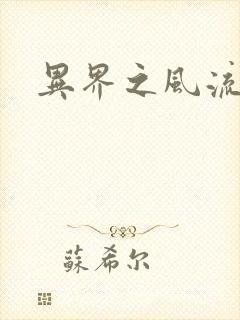 異界之風流
蘇希尔